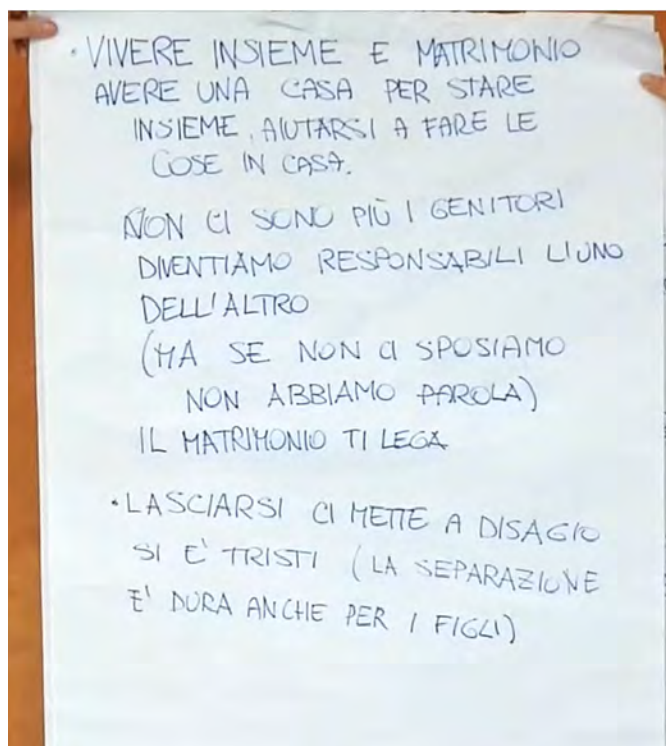 · VIVERE INSIEME E MATRIMONIO
AVERE UNA CASA PER STARE
INSIEME, AIUTARSI A FARE LE
COSE IN CASA.
NON CI SONO PIÙ I GENITORI
DIVENTIAMO RESPONSABILI L'UNO
DELL'ALTRO
(MA SE NON CI SPOSIAMO
NON ABBIAMO PAROLA)
IL MATRIMONIO TI LEGA
· LASCIARSI CI METTE A DISAGIO
SI E' TRISTI (LA SEPARAZIONE
E' DURA ANCHE PER I FIGLI)